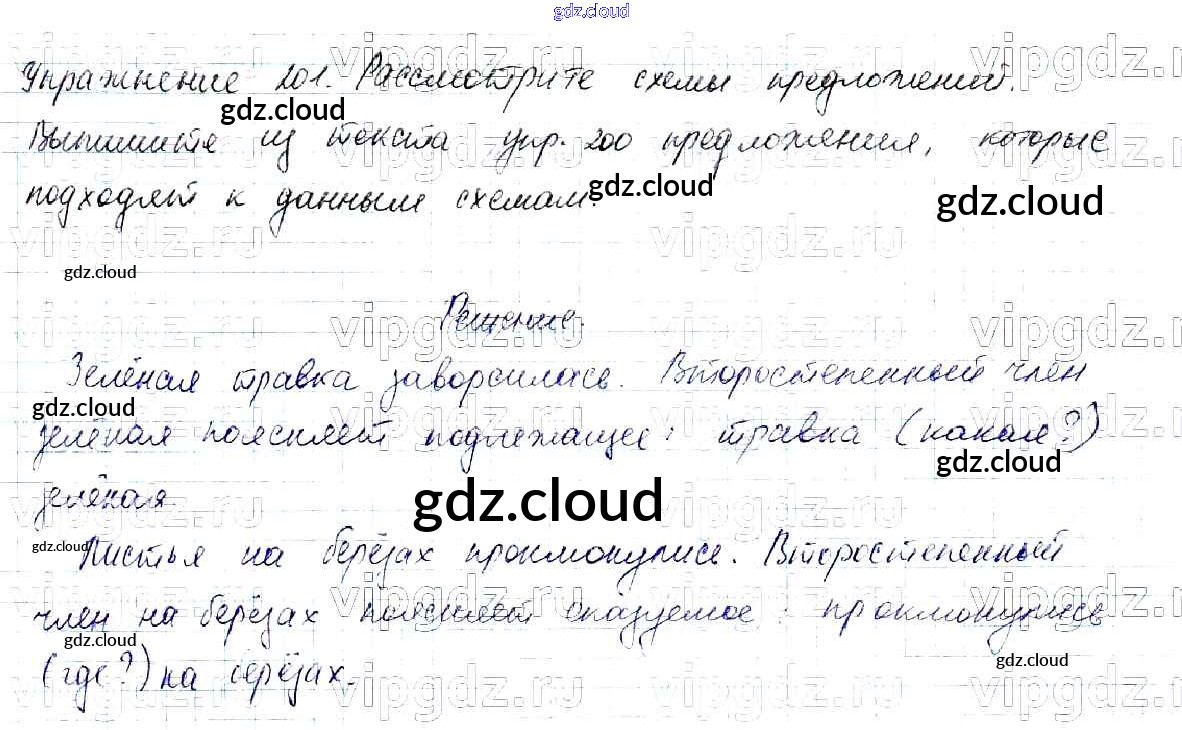 gdz.cloud
Упражнение 201. Рассмотрите схемы предложений.
gdz.cloud
Выпишите из текста упр. 200 предложения, которые
подходят к данным схемам.
gdz.cloud
gdz.cloud
vipgdz.ru
gdz.cloud
Решение.
Зелёная травка заворсилась. Второстепенный член
gdz.cloud
зелёная поясняет подлежащее: травка (какая?)
gdz.cloud
зелёная
gdz.cloud
gdz.cloud
Листья на берёзах проклюнулись. Второстепенный
член на берёзах поясняет сказуемое: проклюнулись
gdz.cloud
(где?) на берёзах.
gdz.cloud